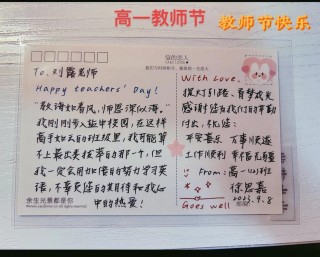 高一教师节
教师节快乐
To. 刘露老师
Happy teachers' Day!
"教诲如春风,师恩深似海。"
我刚刚步入盐中校园,在这样
高手如云的班级里,我可能算
不上最出类拔萃的那一个,但
我一定会用加倍的努力学习英
语,不辜负您的期待和我心
中的热爱!
余生光景都是你
With Love.
提灯引路,育梦成光
感谢您为我们的辛勤
付出,祝您:
平安喜乐 万事顺遂
工作顺利
From: 高一
2023.9.8
Goes well